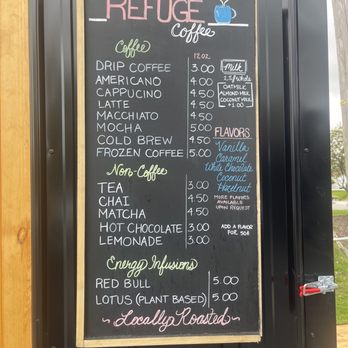 REFUGE
Coffee
Coffee 12 oz.
DRIP COFFEE 3.00
AMERICANO 4.00
CAPPUCINO 4.50
LATTE 4.50
MACCHIATO 4.50
MOCHA 5.00
COLD BREW 4.50
FROZEN COFFEE 5.00
Non-Coffee
TEA 3.00
CHAI 4.50
MATCHA 4.50
HOT CHOCOLATE 3.00
LEMONADE 3.00
Energy Infusions
RED BULL 5.00
LOTUS (PLANT BASED) 5.00
Locally Roasted
Milk
OATMILK
ALMOND MILK
COCONUT MILK
+1.00
FLAVORS
Vanilla
Caramel
White Chocolate
Coconut
Hazelnut
MORE FLAVORS
AVAILABLE
UPON REQUEST
ADD A FLAVOR
FOR 50¢